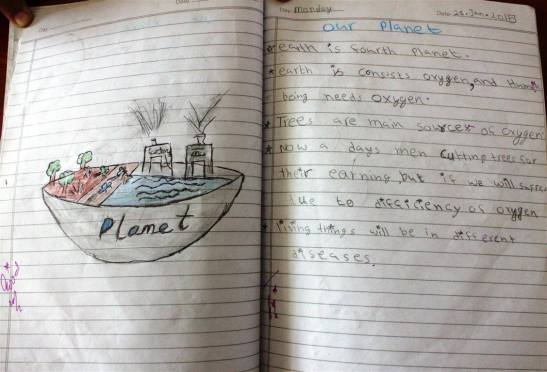 Planet
Date Monday
Date: 28. Jan. 2018
Our Planet
* earth is fourth planet.
* earth is consists oxygen, and Human
being needs oxygen.
* Trees are main sources of oxygen
* Now a days men cutting trees for
their earning, but if we will suffer
due to difficiency of oxygen
* living things will be in different
diseases.